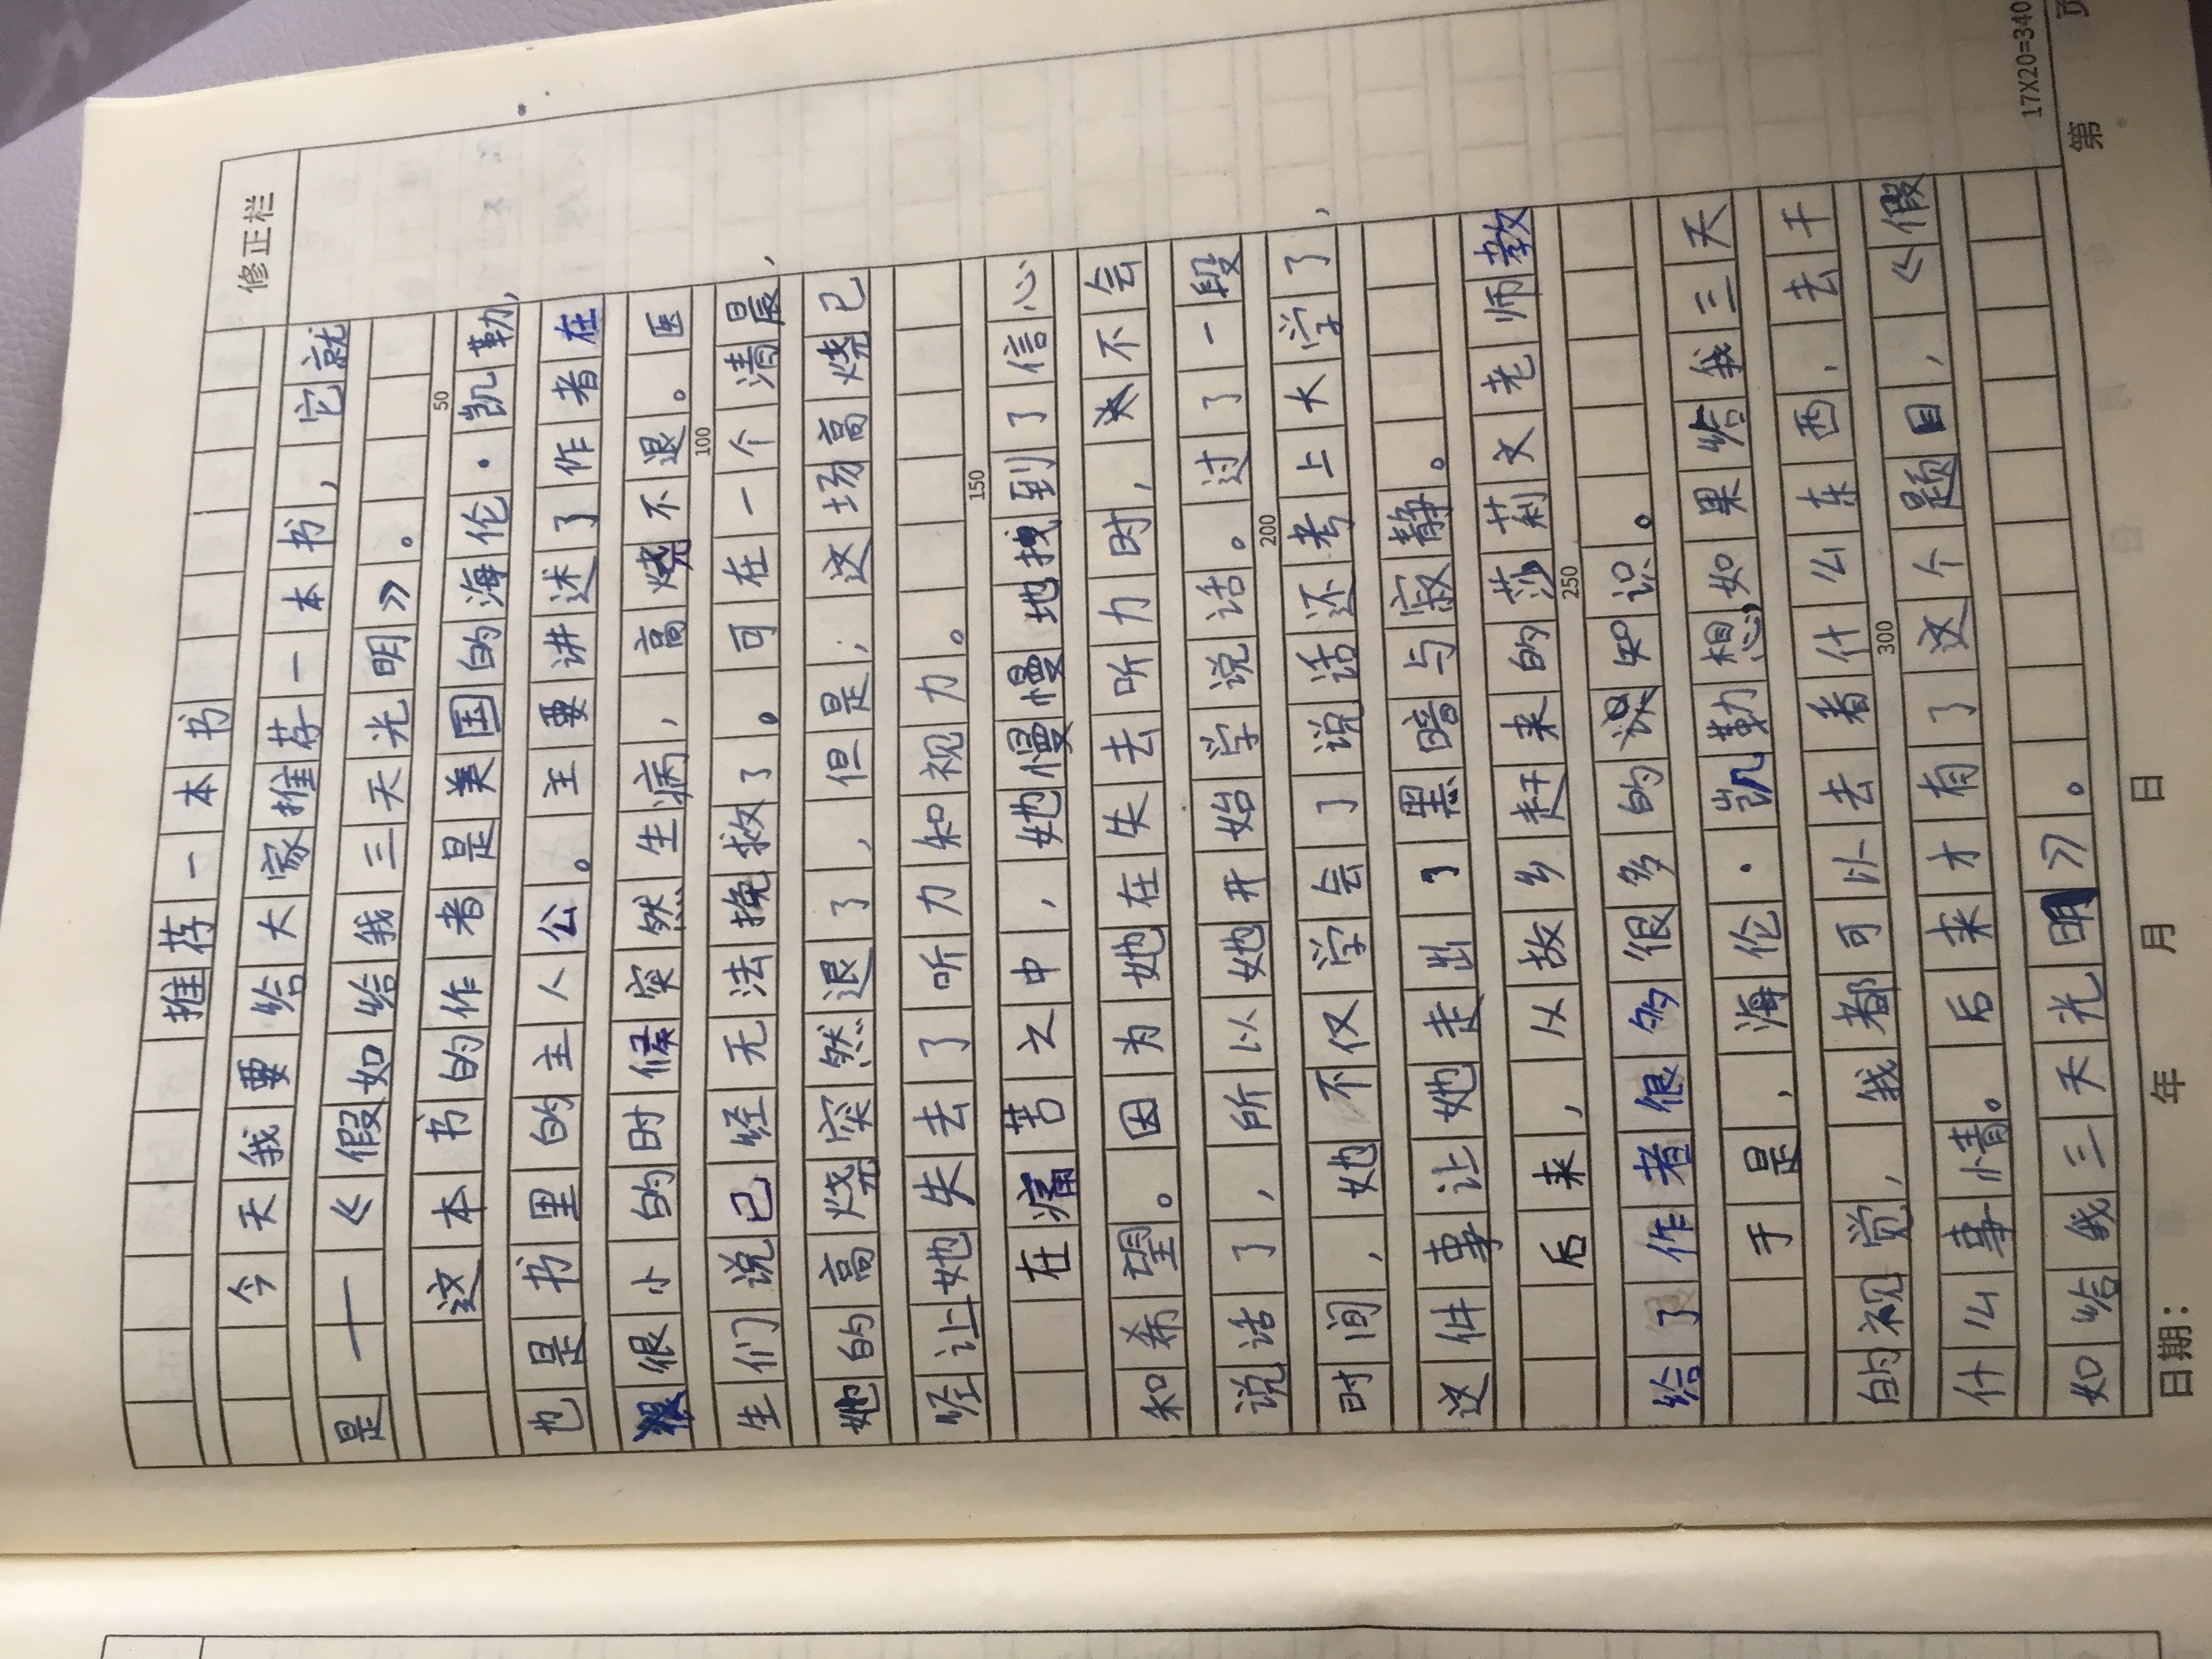 修正栏
推荐一本书
今天我要给大家推荐一本书，它就
是——《假如给我三天光明》。
50
这本书的作者是美国的海伦·凯勒，
也是书里的主人公。主要讲述了作者在
很小的时候突然生病，高烧不退。医
100
生们说已经无法挽救了。可在一个清晨，
她的高烧突然退了，但是；这场高烧已
经让她失去了听力和视力。
150
在痛苦之中，她慢慢地找到了信心
和希望。因为她在失去听力时，不会
说话了，所以她开始学说话。过了一段
200
时间，她不仅学会了说话还考上大学了，
这件事让她走出了黑暗与寂静。
后来，从故乡赶来的莎莉文老师教
250
给了作者很多很多的知识。
于是，海伦·凯勒想，如果给我三天
的视觉，我都可以去看什么东西，去干
300
什么事情。后来才有了这个题目，《假
如给我三天光明》。
17X20=340
日期： 年 月 日 第 页